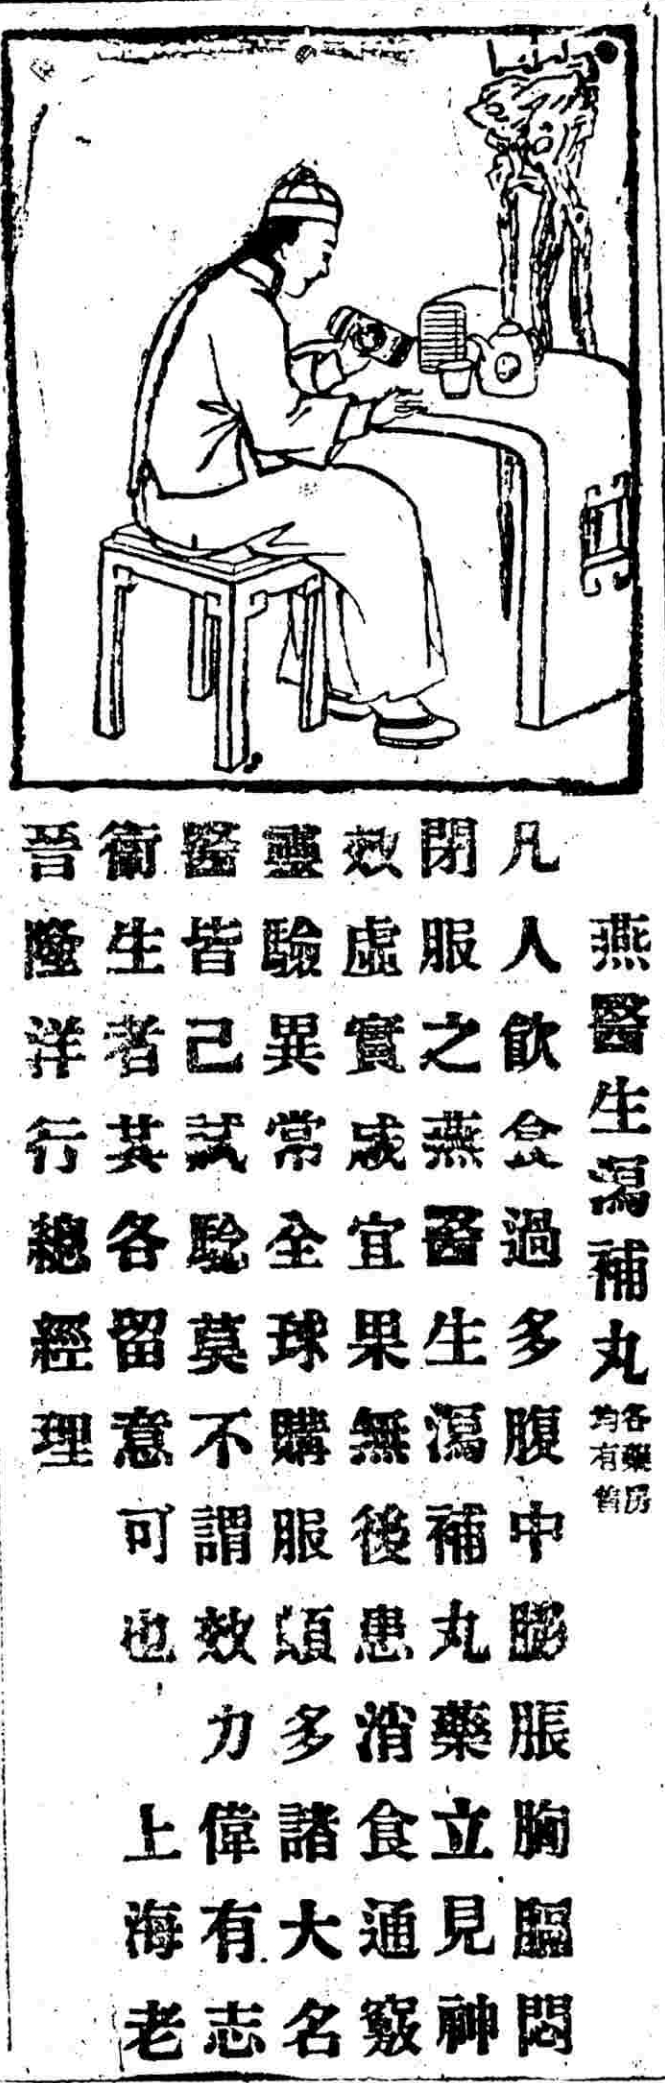 燕醫生瀉補丸
各藥房
均有售
凡人飲食過多腹中膨脹胸膈悶
閉服之燕醫生瀉補丸藥立見神
效虛實咸宜果無後患消食通竅
靈驗異常全球購服頗多諸大名
醫皆已試驗莫不謂效力偉有志
衛生者其各留意可也上海老
晉隆洋行總經理